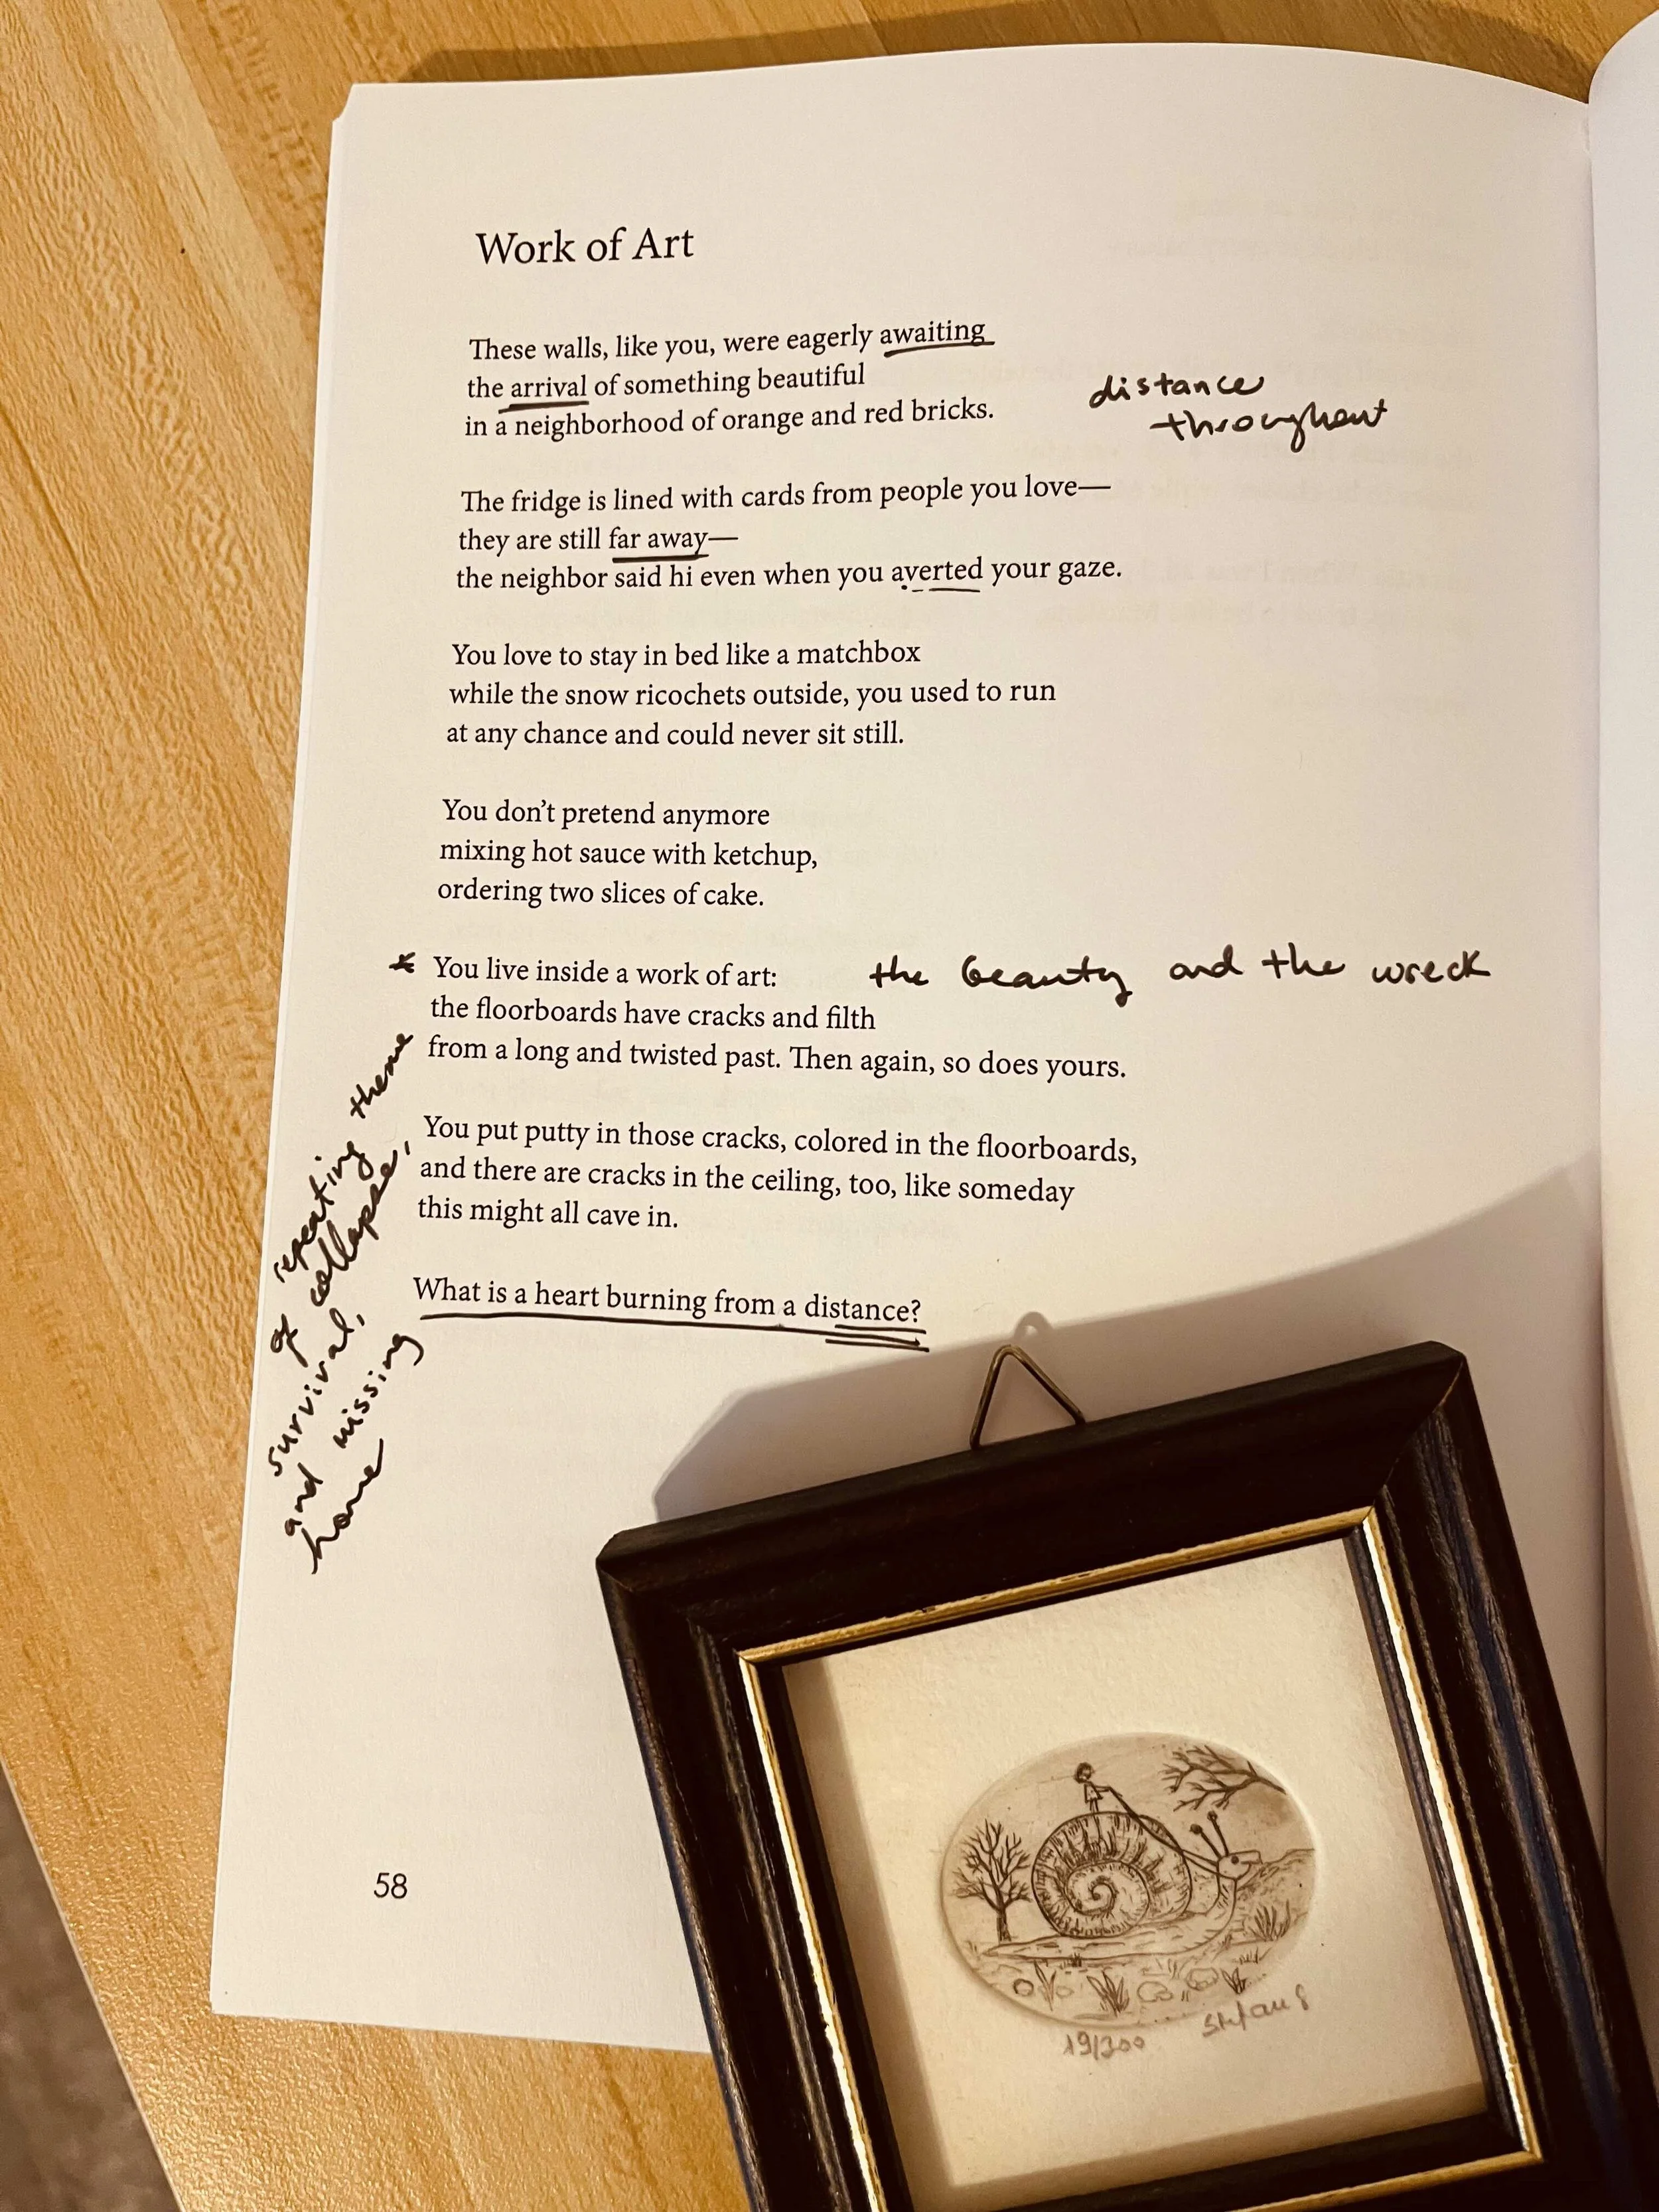 Work of Art
These walls, like you, were eagerly awaiting
the arrival of something beautiful
in a neighborhood of orange and red bricks.
distance
throughout
The fridge is lined with cards from people you love—
they are still far away—
the neighbor said hi even when you averted your gaze.
You love to stay in bed like a matchbox
while the snow ricochets outside, you used to run
at any chance and could never sit still.
You don’t pretend anymore
mixing hot sauce with ketchup,
ordering two slices of cake.
* You live inside a work of art: the beauty and the wreck
the floorboards have cracks and filth
from a long and twisted past. Then again, so does yours.
You put putty in those cracks, colored in the floorboards,
and there are cracks in the ceiling, too, like someday
this might all cave in.
What is a heart burning from a distance?
repeating theme
of collapse,
survival,
and missing
home
58
19/300